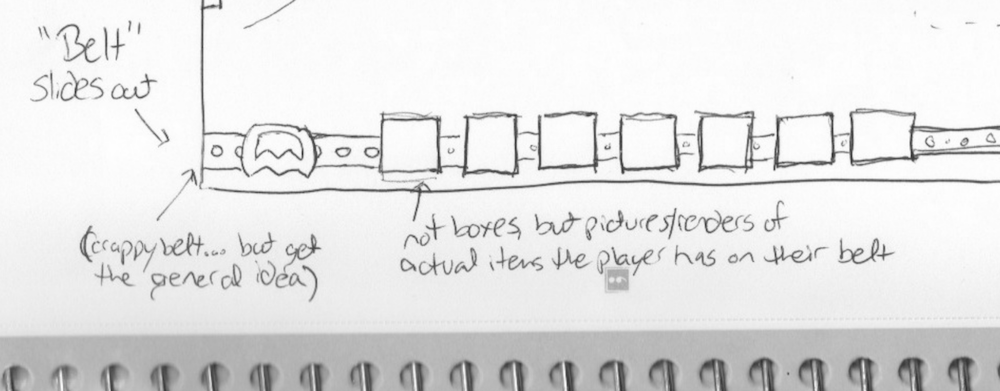 "Belt"
slides out
(crappy belt... but get
the general idea)
not boxes, but pictures/renders of
actual items the player has on their belt